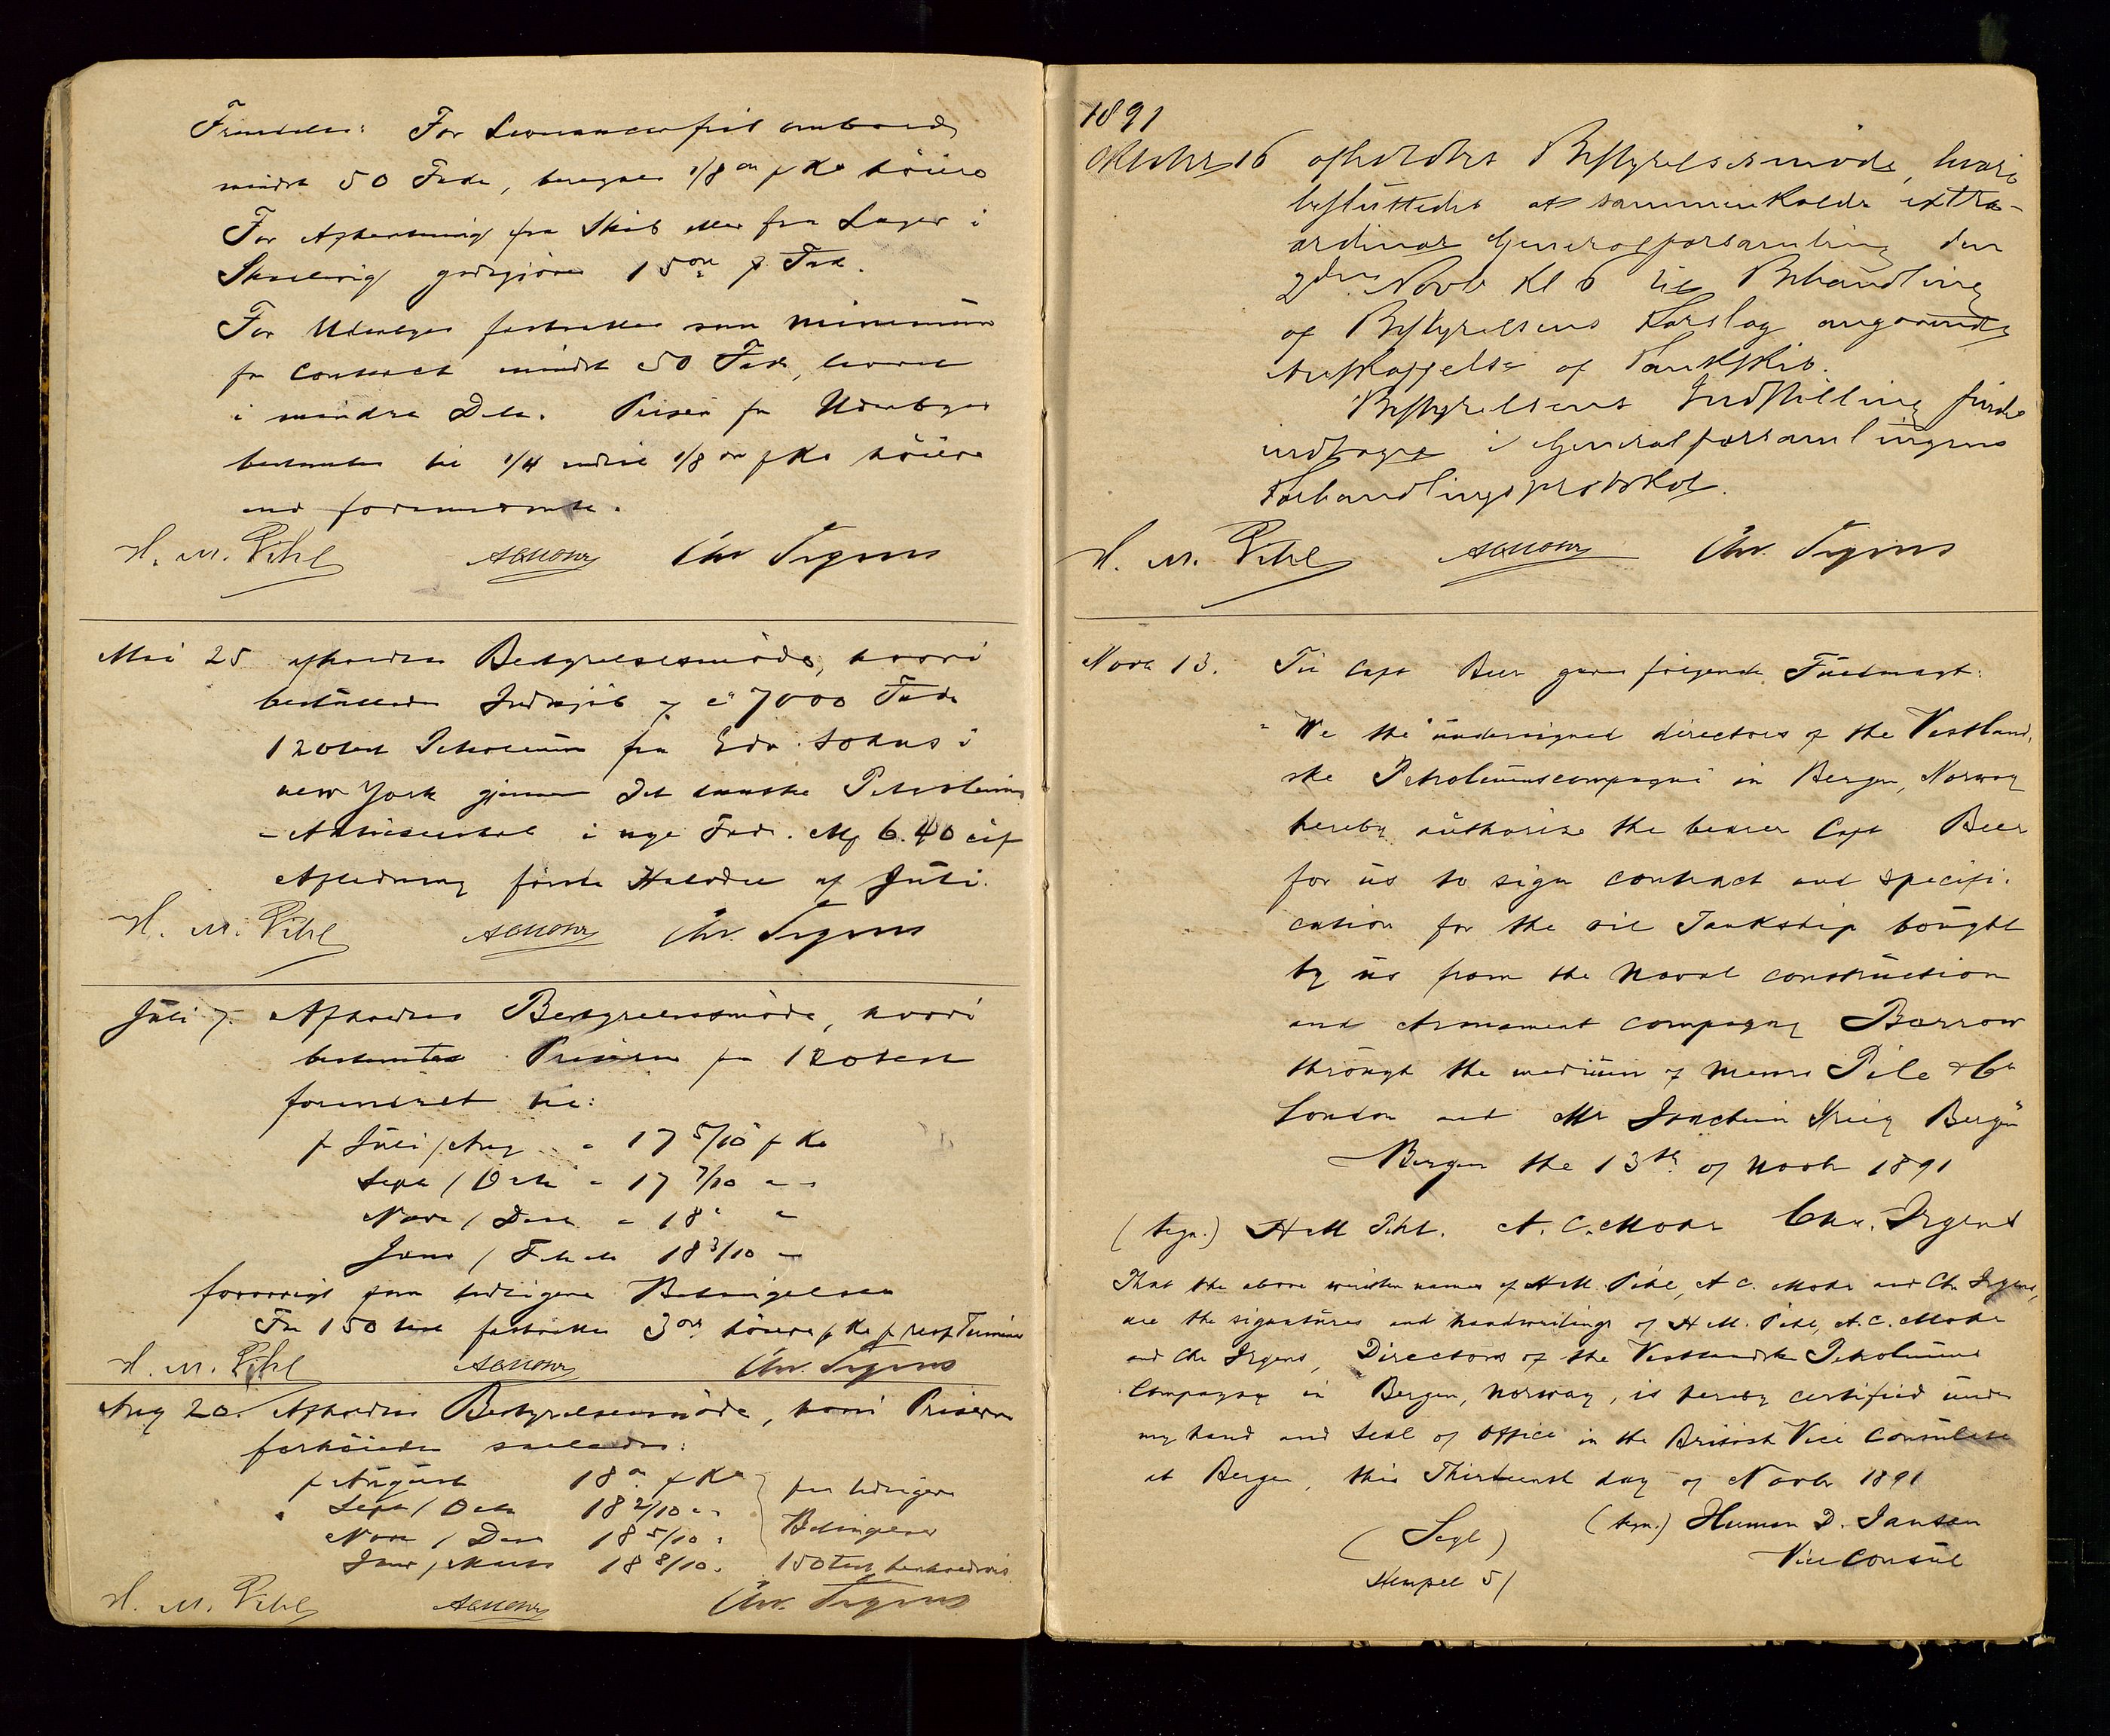 Fremdeles: For Leverancer frit ombord,
mindst 50 Fade, beregnes 1/8 øre pr Ko høiere
For Afhentning fra Skib eller fra Lager i
Skudevig godtgjøres 15 øre pr Fad.
For Udenbyes fastsattes som minimum
for contract mindst 50 Fade, leveret
i mindre Dele. Prisen for Udenbyes
bestemtes til 1/4 indtil 1/8 øre pr Ko höiere
end forannævnte.
H. M. Pihl ACMohr Chr. Irgens
Mai 25 afholdtes Bestyrelsesmöde, hvori
besluttedes Indkjöb af ca 7000 Fade
120test Petroleum fra Edv. in
new York gjennem Det danske Petroleums
- Aktieselskab i nye Fade. Mk 6.40 cif
Afladning förste Halvdel af Juli.
H. M. Pihl ACMohr Chr. Irgens
Juli 7. Afholdtes Bestyrelsesmöde, hvori
bestemtes Priserne for 120test
forandret til:
pr Juli/Aug " 17 5/10 pr Ko
Sept / Octr " 17 7/10 " "
Novr / Decr " 18 " "
Janr / Febr 18 3/10 "
forövrigt paa tidligere Betingelser
For 150 test fastsattes 3 øre höiere pr Ko pr resp Termine
H. M. Pihl ACMohr Chr. Irgens
Aug 20. Afholdtes Bestyrelsesmöde, hvori Priserne
forhöiedes saaledes:
pr August 18 ø pr Ko
" Sept / Octr 18 2/10 " "
Novr / Decr 18 5/10 "
Janr / Marts 18 8/10 "
paa tidligere
Betingelser
150 Test
H. M. Pihl ACMohr Chr. Irgens
1891
Oktober 16 afholdtes Bestyrelsesmöde, hvori
besluttedes at sammenkalde extra-
ordinær Generalforsamling den
2den Novbr Kl 6 til Behandling
af Bestyrelsens Forslag angaaende
Anskaffelse af Tankskib.
Bestyrelsens Indstilling findes
indtaget i Generalforsamlingens
Forhandlingsprotokol.
H. M. Pihl ACMohr Chr. Irgens
Novbr 13. Til Capt Beer gaves fölgende Fuldmagt:
"We the undersigned directors of the Vestland,
ske Petroleumscompagni in Bergen, Norway
hereby authorize the bearer Capt Beer
for us to sign contract and specifi-
cation for the oil Tankship bought
by us from the Naval construction
and Armament compagny Barrow
through the medium of Messrs Pile & Co
London and Mr Joachim Krieg Bergen"
Bergen the 13th of Novbr 1891
(sign.) H M Pihl. A. C. Mohr Chr. Irgens
That the above written names of H.M. Pihl, A C. Mohr and Chr Irgens,
are the signatures and handwritings of H M. Pihl, A. C. Mohr
and Chr Irgens, Directors of the Vestlandske Petroleums
Compagny in Bergen, Norway, is hereby certified under
my hand and Seal of Office in the British Vice Consulate
at Bergen, this Thirteenth day of Novbr 1891
(Segl) (sign.) Herman D. Janson
Stempel 5/ Vice Consul